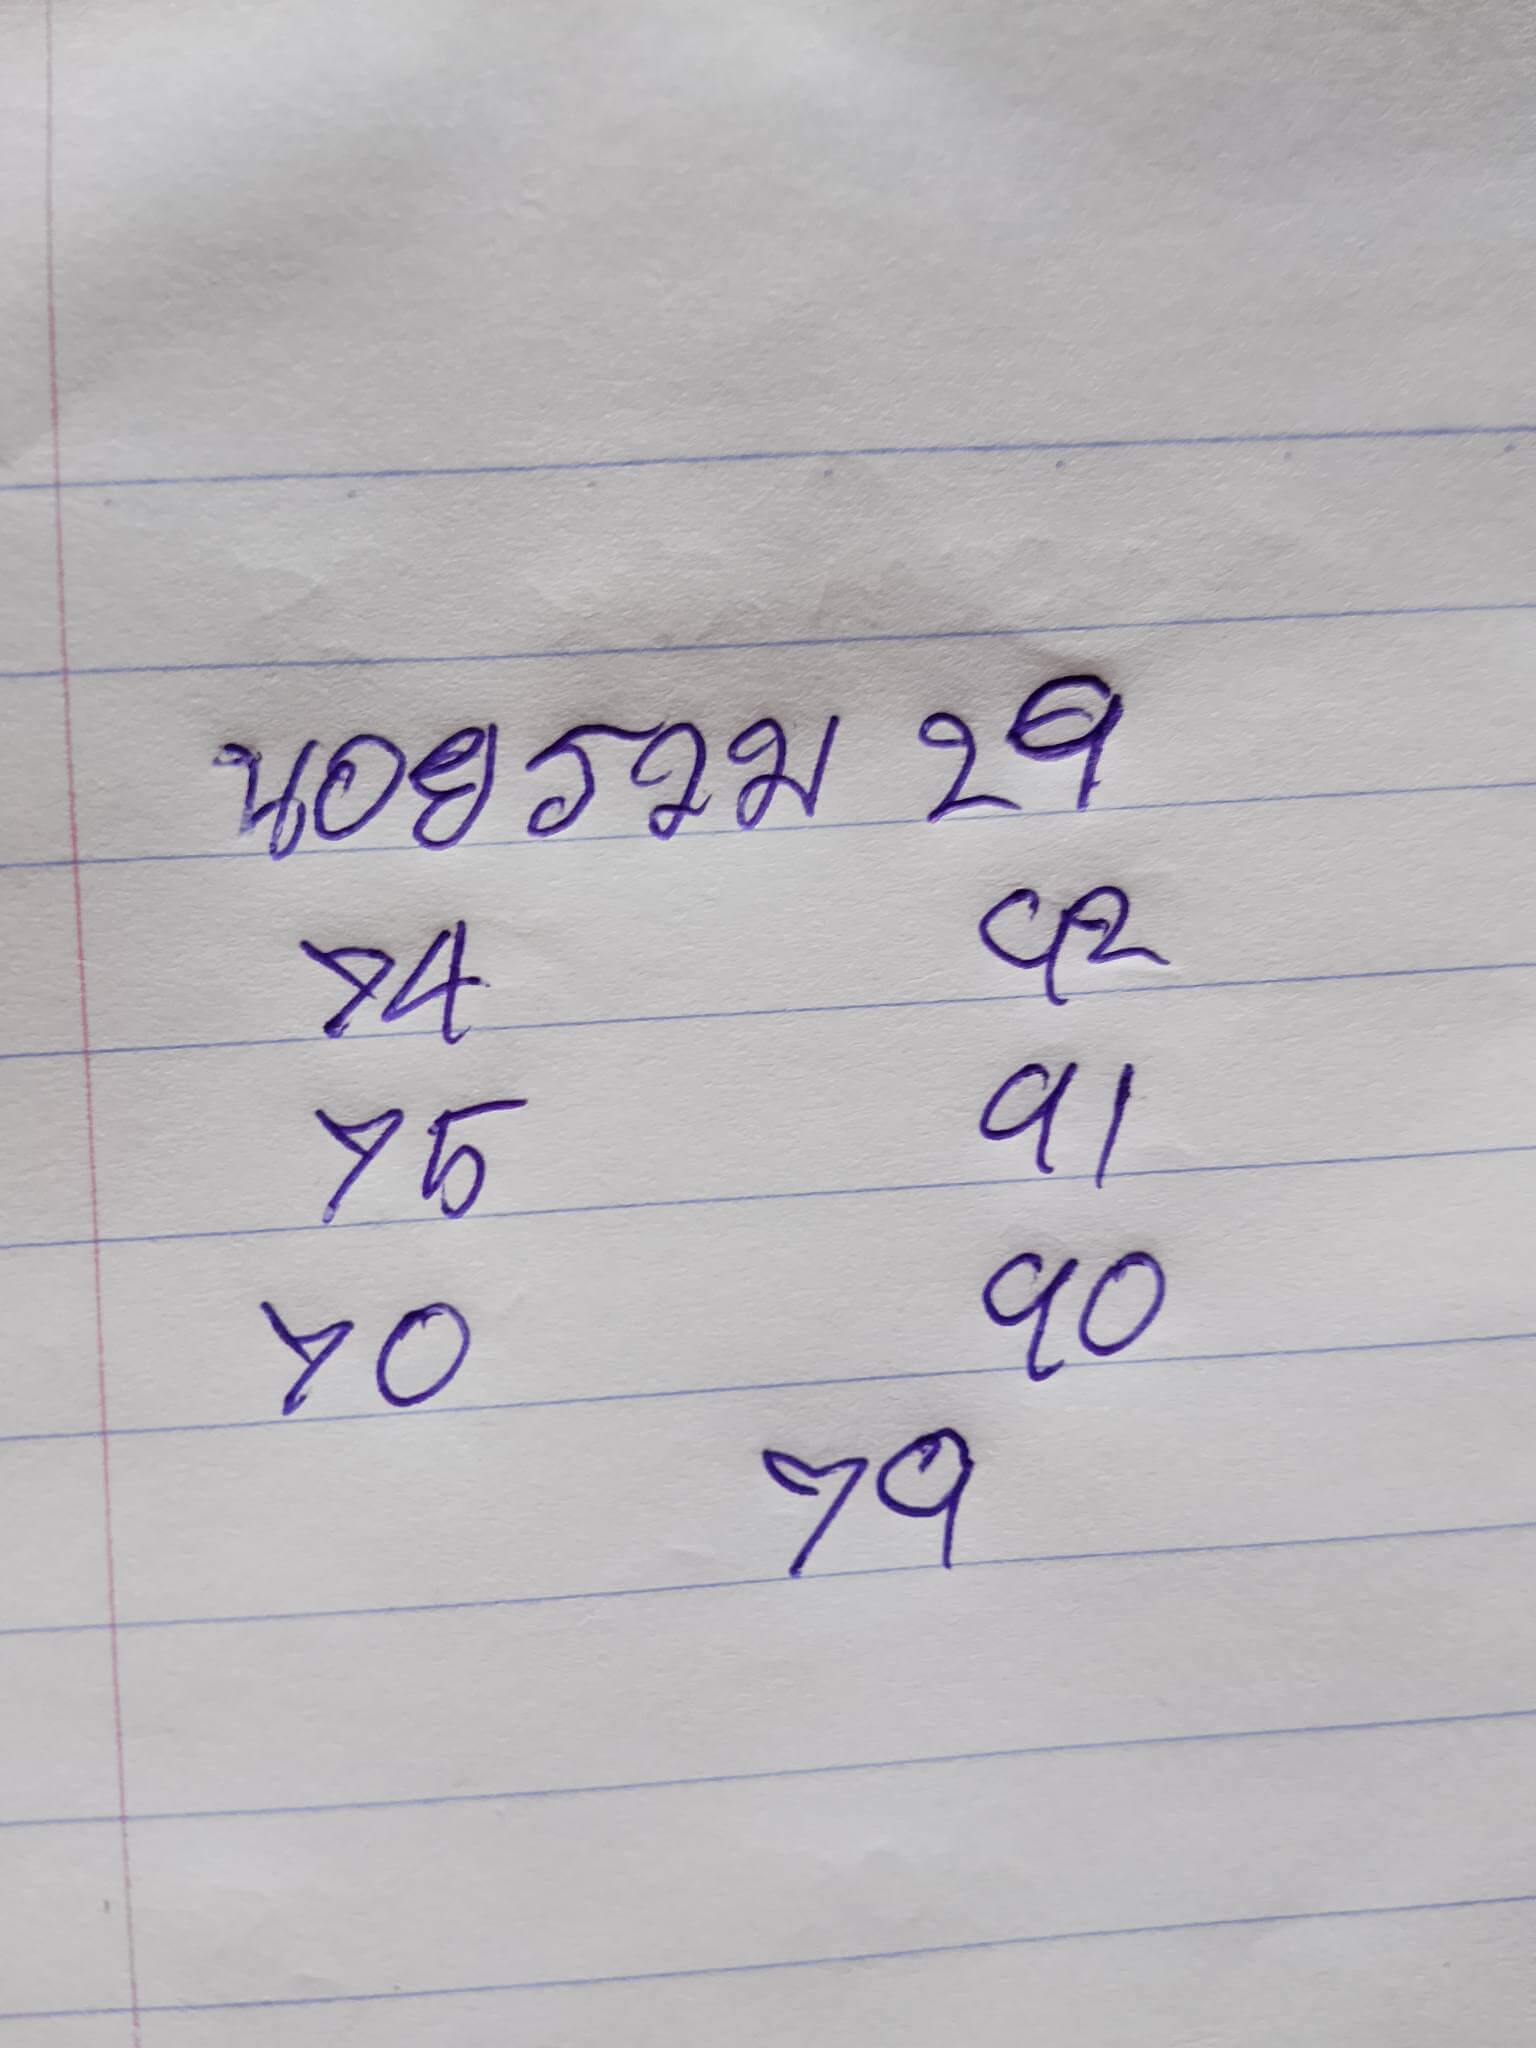 นอยรวม 29
74 92
75 91
70 90
79